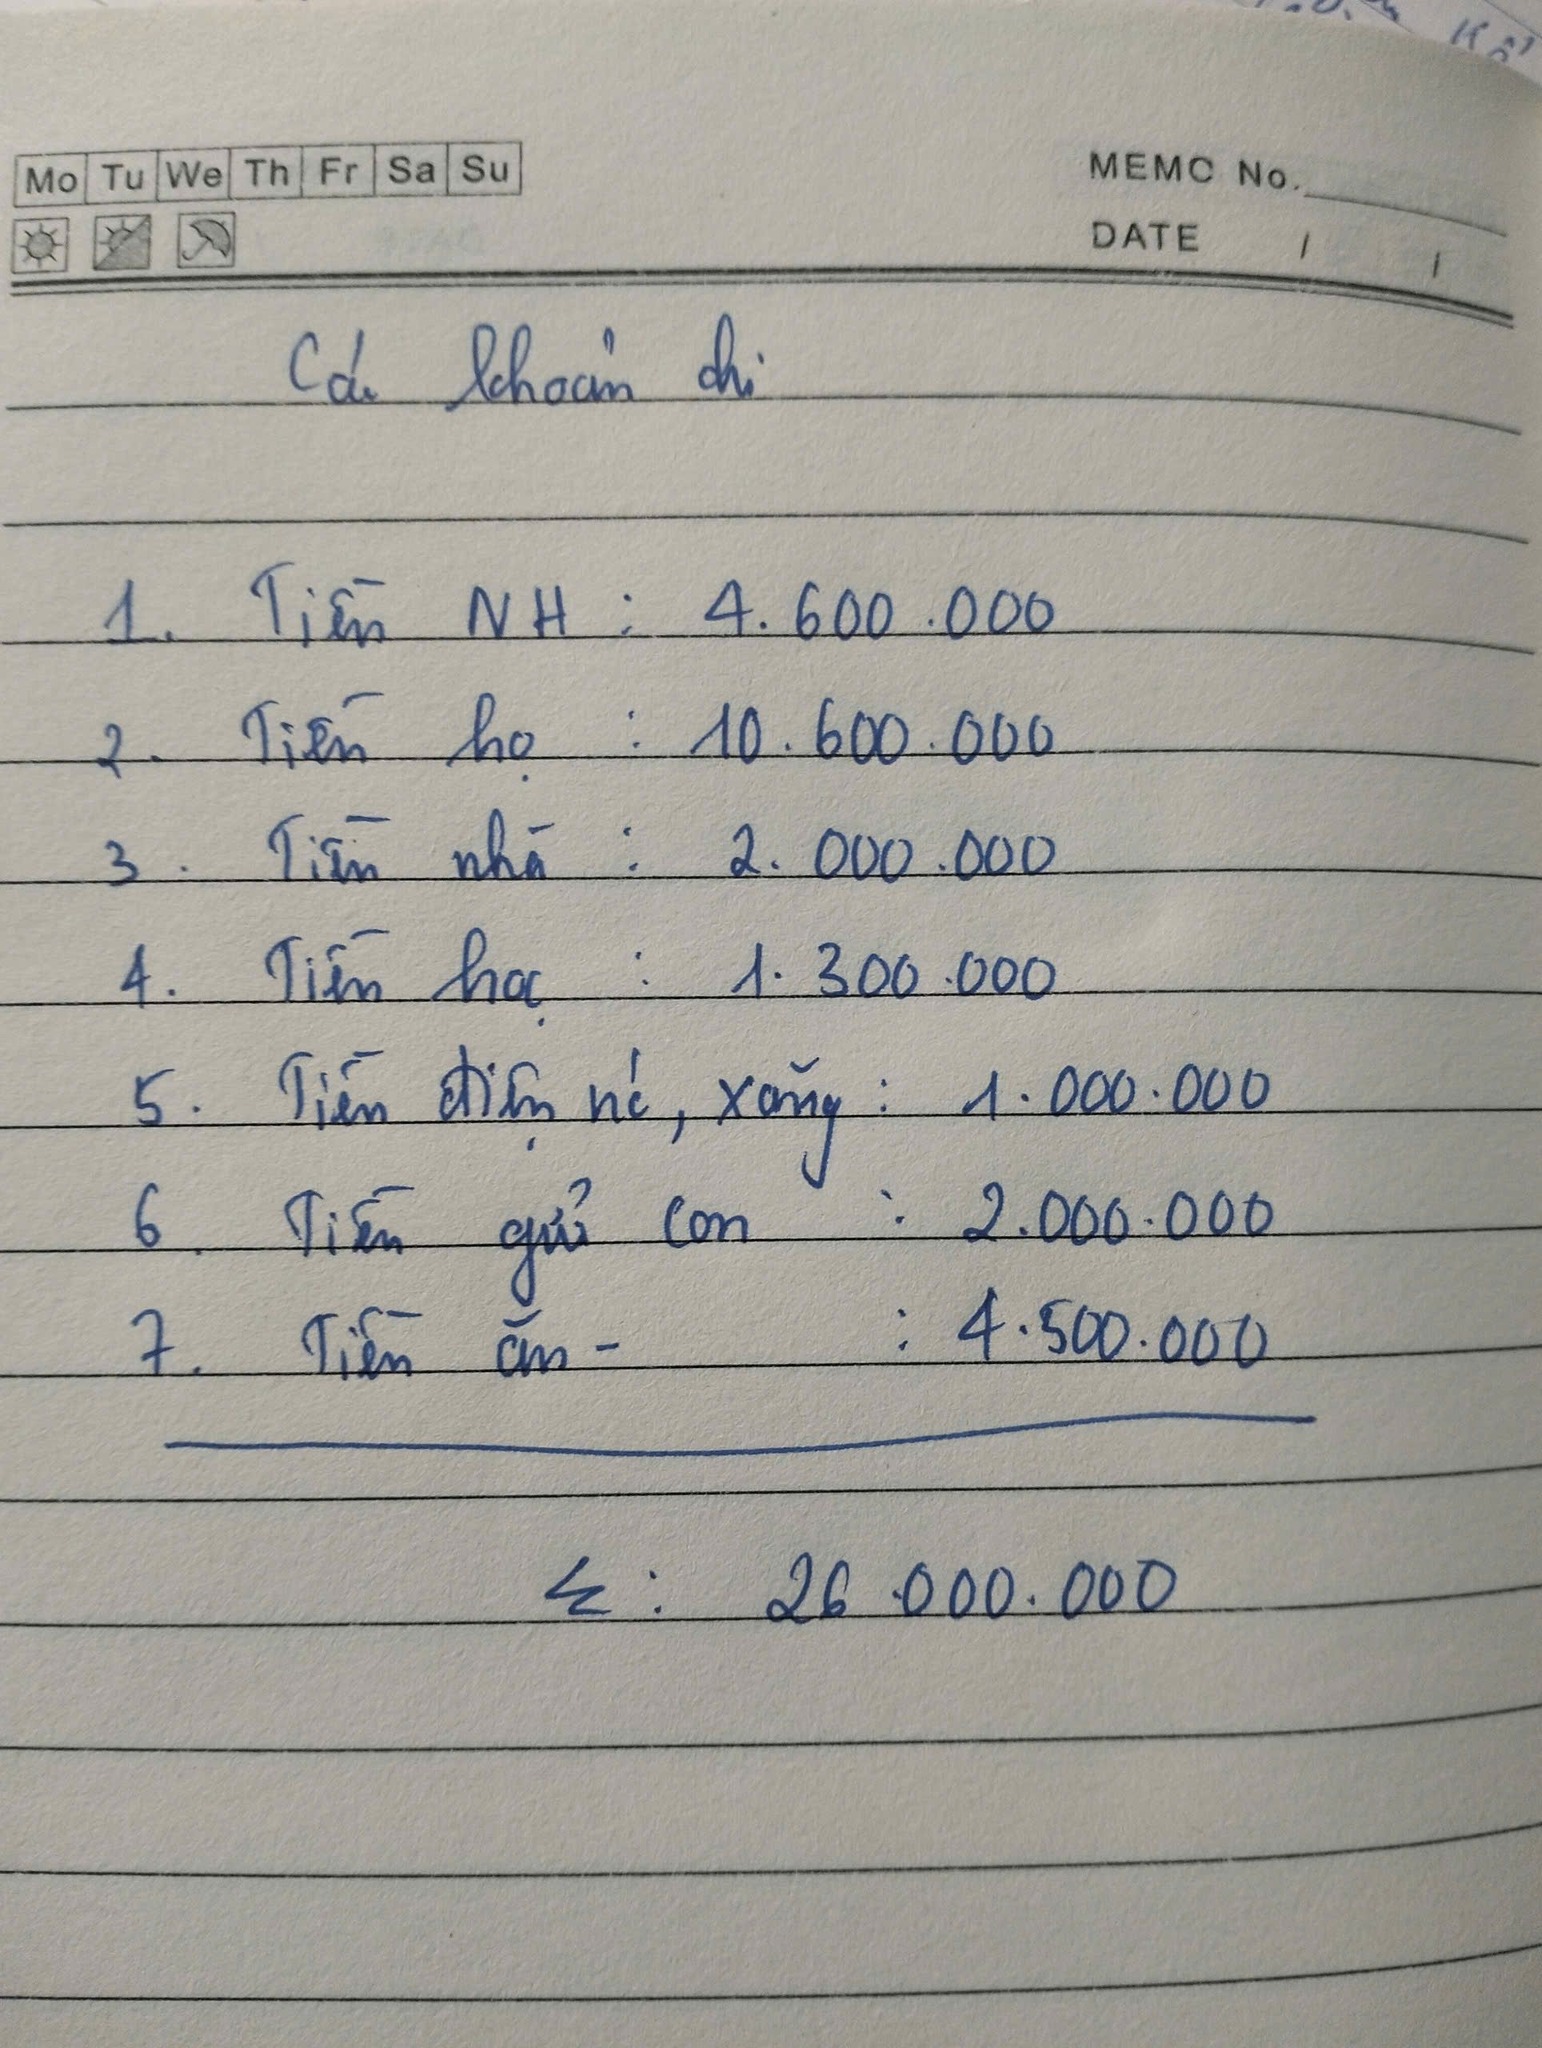 Mo Tu We Th Fr Sa Su
MEMO No.
DATE / /
Các khoản chi
1. Tiền NH : 4.600.000
2. Tiền họ : 10.600.000
3. Tiền nhà : 2.000.000
4. Tiền học : 1.300.000
5. Tiền điện nc, xăng : 1.000.000
6. Tiền gửi con : 2.000.000
7. Tiền ăn - : 4.500.000
Σ : 26.000.000